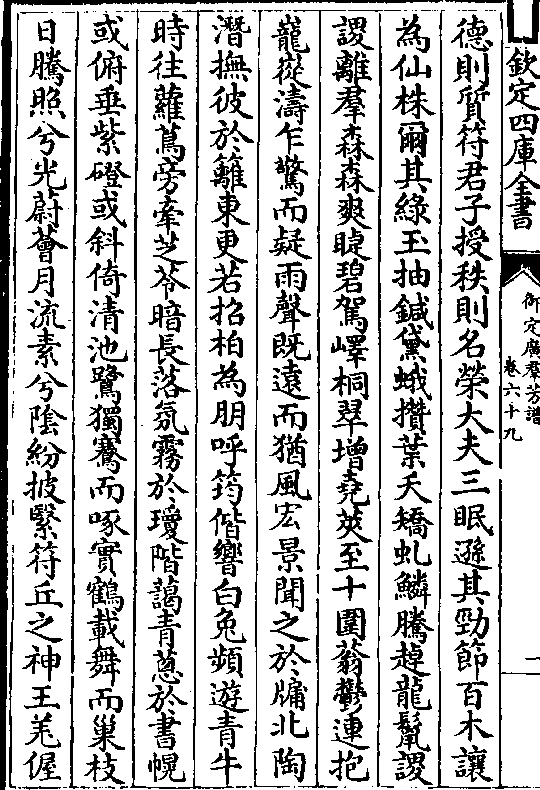 欽定四庫全書
御定廣羣芳譜
卷六十九
一
德則質符君子授秩則名榮大夫三眠遜其勁節百木讓
為仙株爾其綠玉抽鍼黛蛾攢葉夭矯虬鱗騰趠龍鬛謖
謖離羣森森爽睫碧駕嶧桐翠增堯莢至十圍蓊鬱連抱
巃嵷濤乍驚而疑雨聲既遠而猶風宏景聞之於牖北陶
潛撫彼於籬東更若招柏為朋呼筠偕響白兔頻遊青牛
時往蘿蔦旁牽芝苓暗長落氛霧於瓊階藹青蔥於書幌
或俯垂紫磴或斜倚清池鷺獨騫而啄實鶴載舞而巢枝
日騰照兮光蔚薈月流素兮陰紛披繄符丘之神王羌偓